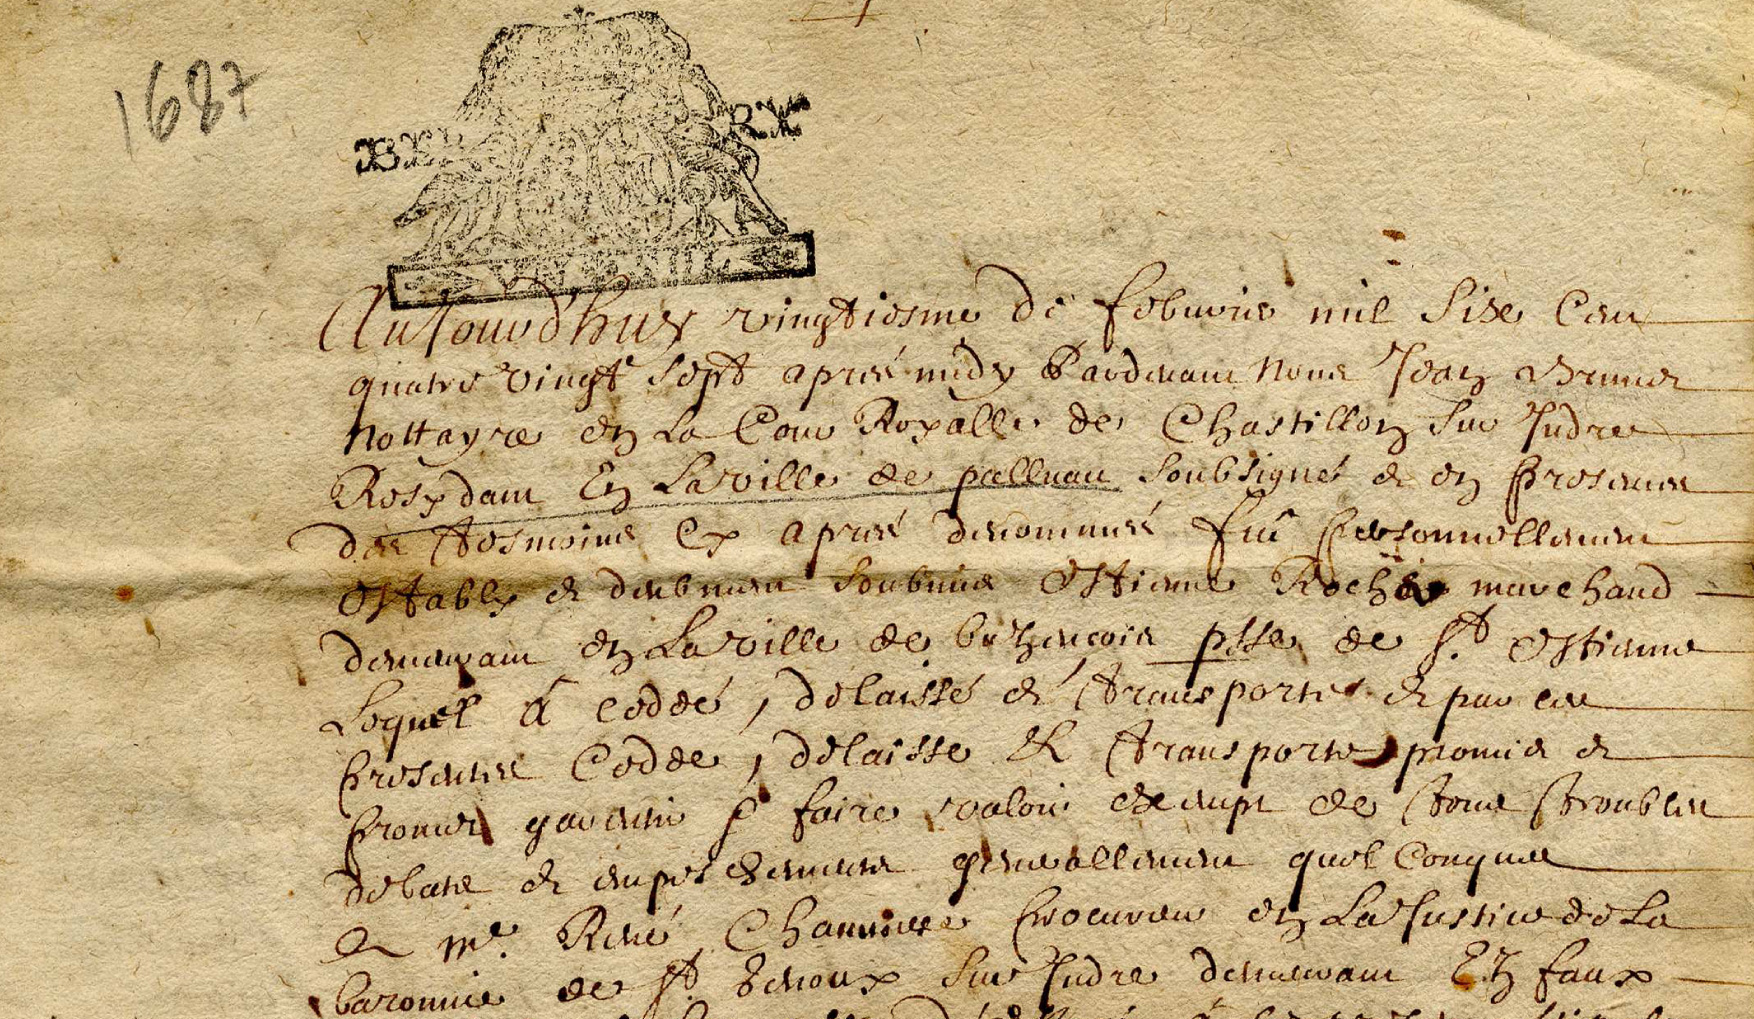 1687
BERRY
Aujourdhuy vingtiesme de febvrier mil Six Cent
quatre vingt Sept apres midy Pardevant Nous Jean
Nottayre en La Cour Royalle de Chastillon Sur Indre
Resydant En La ville de palluau Soubsigné et en presence
des tesmoins Cy apres denommés fut personnellement
Estably et deubment Soubmis Estienne marchand
demeurant en La ville de buzancois psse de St Estienne
Lequel a Ceddé, delaissé et transporté et par ces
presentes Cedde, delaisse et transporte promis et
promet garentir faire valoir exempt de tous troubles
debats et empeschements generallement quelConques
A Me René procureur en La Justice de La
baronnie de St Genoux Sur Indre demeurant En faux